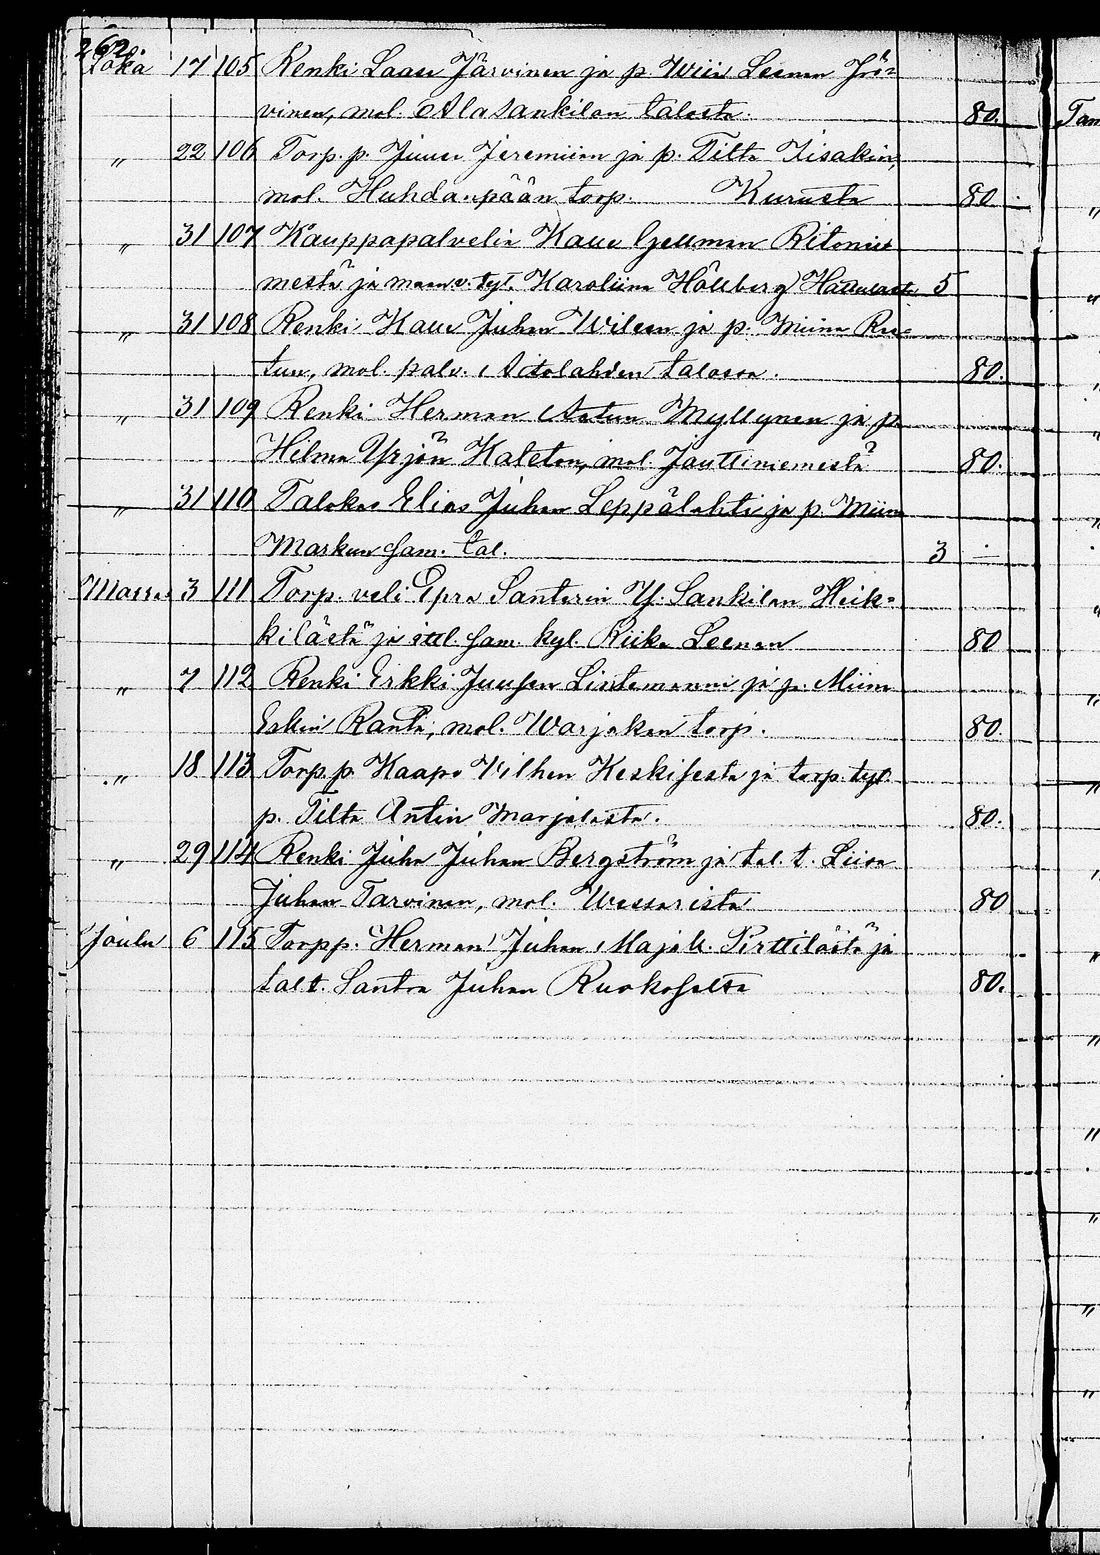 262.
Loka 17 105 Renki Kaaue Järvinen ja p. Wiia Leenan Jär=
vinen, mol. Ala Sankilan talosta. 80.
" 22 106 Torp. p. Juuse Jeremiian ja p. Tilta Iisakin,
mol. Huhdanpään torp. Kurusta 80
" 31 107 Kauppapalvelia Kalle Hellman Ritonie
mestä ja maanv. tyt. Karoliina Hållberg 5
" 31 108 Renki Kalle Juhan Wilean ja p. Miina Ree=
tun, mol. palv. Aitolahden talossa. 80.
" 31 109 Renki Herman Aatun Myllynen ja p.
Hilma Yrjön Kaleton, mol. Jauttiniemestä 80.
" 31 110 Talokas Elias Juhan Leppälahti ja p. Miina
Markun sam. tal. 3 —
Marras 3 111 Torp. veli Epra Santerin Y. Sankilan Heik=
kilästä ja ittl. sam. kyl. Riika Leenan 80
" 7 112 Renki Erkki Juusen Lintemanni ja p. Miina
Eskin Ranta, mol. Warjakan torp. 80.
" 18 113 Torp. p. Kaapo Vilhen Keskisesta ja torp. tyt.
p. Tilta Antin Marjalasta. 80.
" 29 114 Renki Juha Juhan Bergström ja tal. t. Liisa
Juhan Tarvinen, mol. Wessarista 80
Joulu 6 115 Torp p. Herman Juhan Maja U. Pirttilästä ja
tal t. Santra Juhan Ruokoselta 80.
Tam